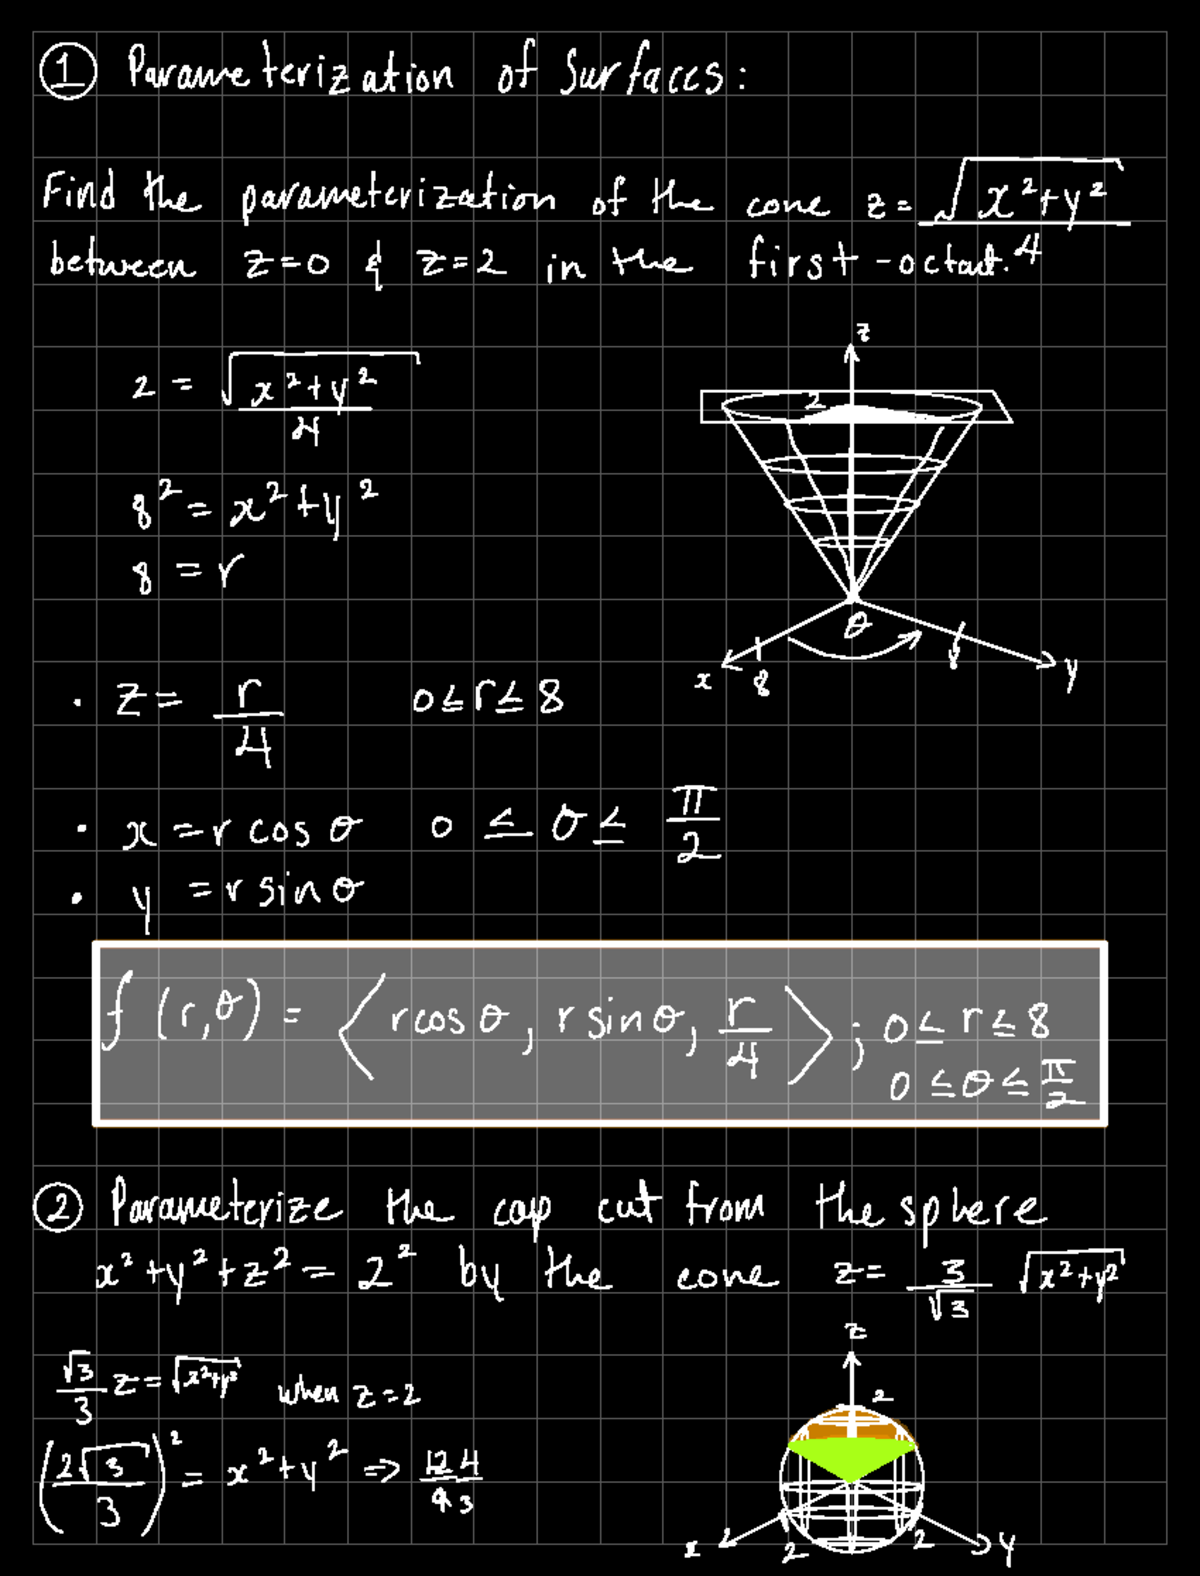 ① Parameterization of Surfaces:
Find the parameterization of the cone z = √(x²+y²)/4
between z=0 & z=2 in the first-octant.
2 = √(x²+y²)/4
8² = x²+y²
8 = r
z
2
θ
x 8
8 y
• z = r/4 0≤r≤8
• x = r cos θ 0 ≤ θ ≤ π/2
• y = r sin θ
f (r,θ) = ⟨ r cos θ, r sin θ, r/4 ⟩; 0≤r≤8
0 ≤ θ ≤ π/2
② Parameterize the cap cut from the sphere
x²+y²+z² = 2² by the cone z = 3/√3 √(x²+y²)
√3/3 z = √(x²+y²) when z=2
(2√3/3)² = x²+y² ⇒ 12/9 4/3
z
2
x 2 2 y